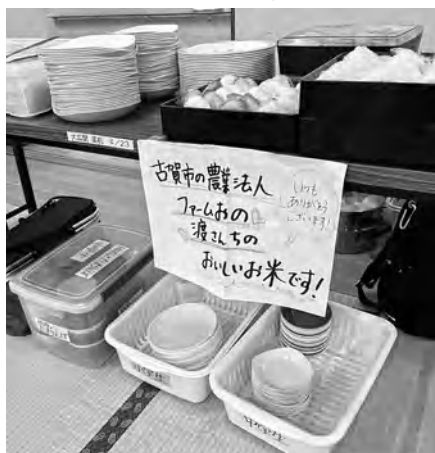 古賀市の農業法人
ファームおの
渡さんちの
おいしいお米です!
いつも
ありがとう
ございます!
中学生